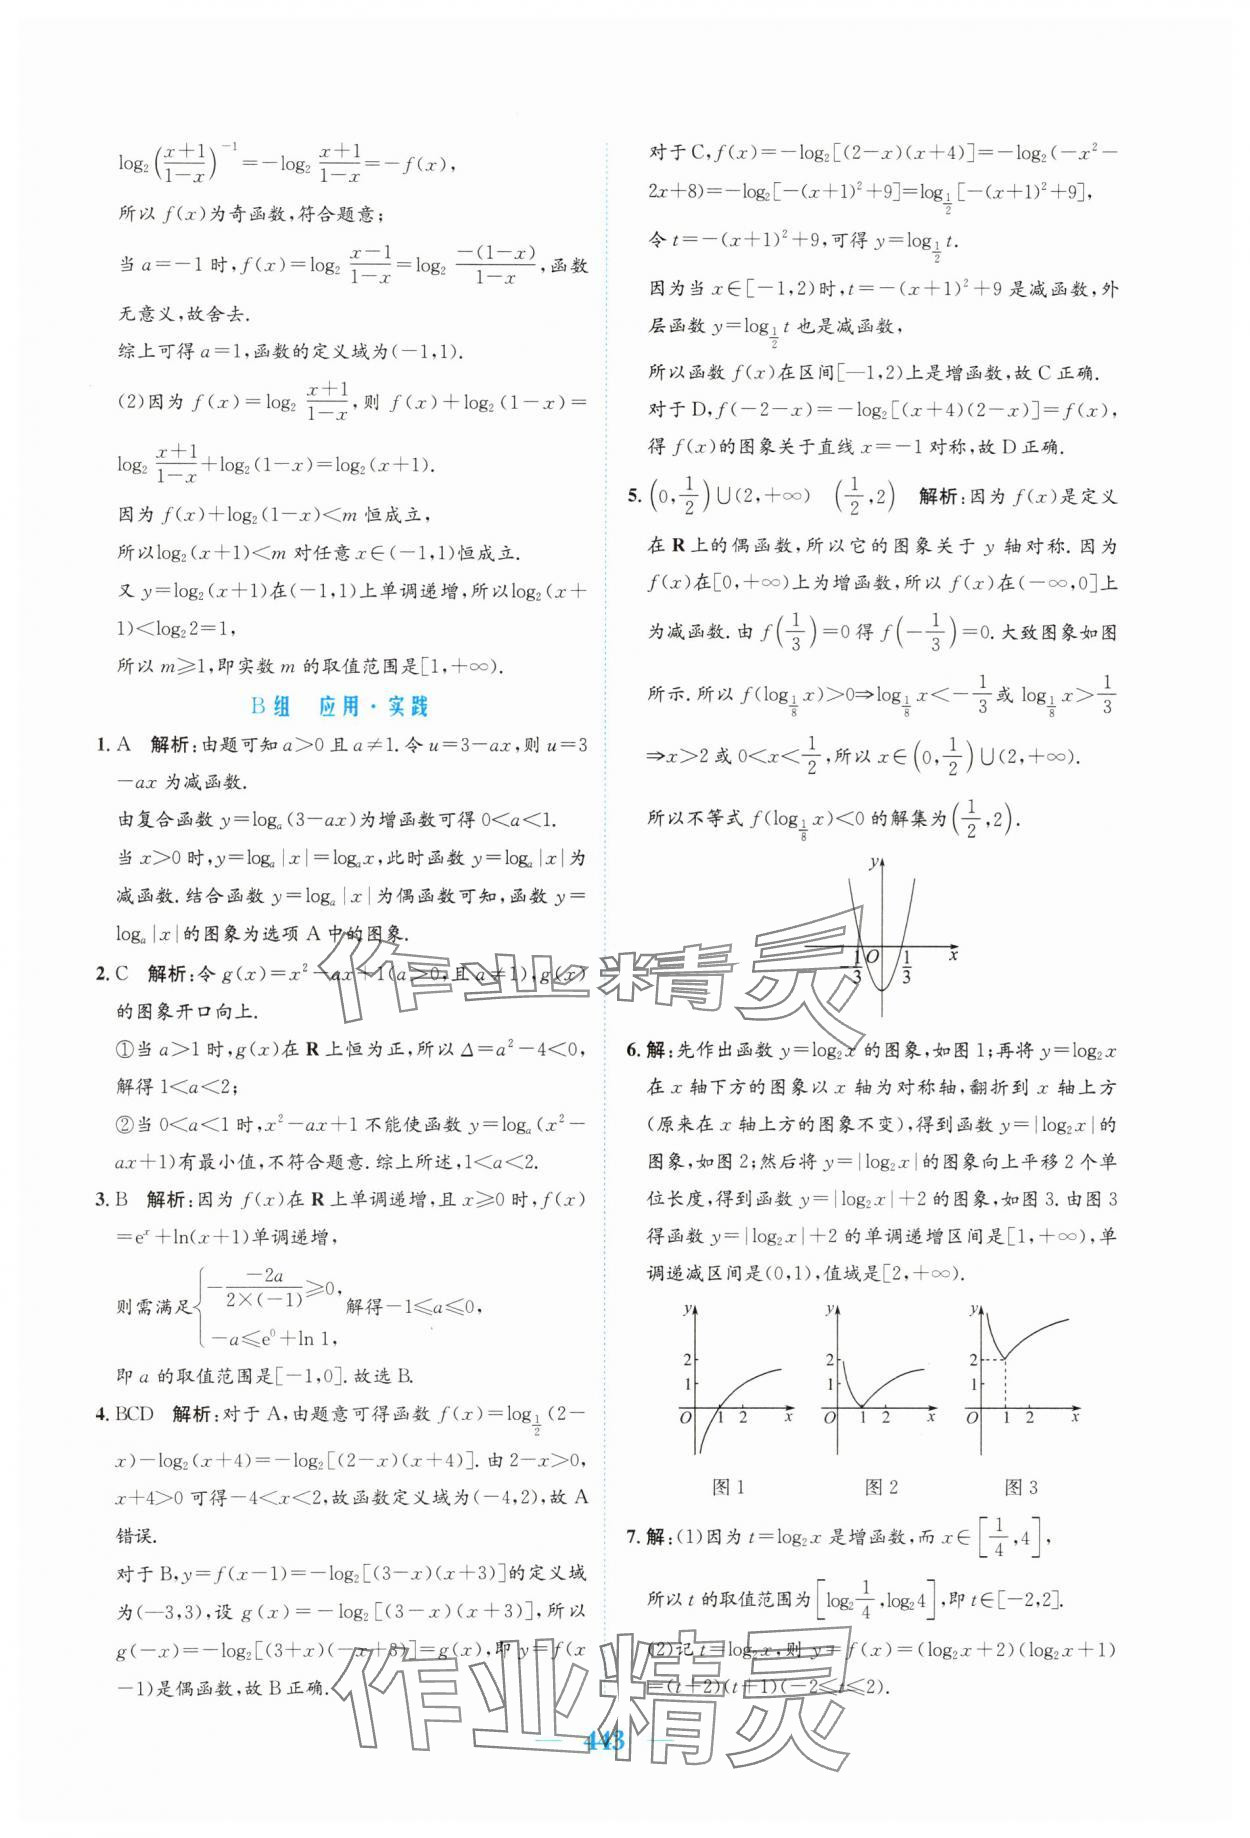 log₂((x+1)/(1-x))⁻¹=-log₂ (x+1)/(1-x)=-f(x),
所以 f(x)为奇函数,符合题意;
当 a=-1 时,f(x)=log₂ (x-1)/(1-x)=log₂ (-(1-x))/(1-x),函数
无意义,故舍去.
综上可得 a=1,函数的定义域为(-1,1).
(2)因为 f(x)=log₂ (x+1)/(1-x),则 f(x)+log₂(1-x)=
log₂ (x+1)/(1-x)+log₂(1-x)=log₂(x+1).
因为 f(x)+log₂(1-x)<m 恒成立,
所以log₂(x+1)<m 对任意 x∈(-1,1)恒成立.
又 y=log₂(x+1)在(-1,1)上单调递增,所以log₂(x+
1)<log₂2=1,
所以 m≥1,即实数 m 的取值范围是[1,+∞).
B组 应用·实践
1. A 解析:由题可知 a>0 且 a≠1.令 u=3-ax,则 u=3
-ax 为减函数.
由复合函数 y=logₐ(3-ax)为增函数可得 0<a<1.
当 x>0 时,y=logₐ|x|=logₐx,此时函数 y=logₐ|x|为
减函数.结合函数 y=logₐ|x|为偶函数可知,函数 y=
logₐ|x|的图象为选项 A 中的图象.
2. C 解析:令 g(x)=x²-ax+1(a>0,且 a≠1),g(x)
的图象开口向上.
①当 a>1 时,g(x)在 R 上恒为正,所以 Δ=a²-4<0,
解得 1<a<2;
②当 0<a<1 时,x²-ax+1 不能使函数 y=logₐ(x²-
ax+1)有最小值,不符合题意.综上所述,1<a<2.
3. B 解析:因为 f(x)在 R 上单调递增,且 x≥0 时,f(x)
=eˣ+ln(x+1)单调递增,
则需满足{-(-2a)/(2×(-1))≥0, 解得-1≤a≤0,
-a≤e⁰+ln 1,
即 a 的取值范围是[-1,0].故选 B.
4. BCD 解析:对于 A,由题意可得函数 f(x)=log_{1/2}(2-
x)-log₂(x+4)=-log₂[(2-x)(x+4)].由 2-x>0,
x+4>0 可得-4<x<2,故函数定义域为(-4,2),故 A
错误.
对于 B,y=f(x-1)=-log₂[(3-x)(x+3)]的定义域
为(-3,3),设 g(x)=-log₂[(3-x)(x+3)],所以
g(-x)=-log₂[(3+x)(-x+3)]=g(x),即 y=f(x
-1)是偶函数,故 B 正确.
对于 C,f(x)=-log₂[(2-x)(x+4)]=-log₂(-x²-
2x+8)=-log₂[-(x+1)²+9]=log_{1/2}[-(x+1)²+9],
令 t=-(x+1)²+9,可得 y=log_{1/2} t.
因为当 x∈[-1,2)时,t=-(x+1)²+9 是减函数,外
层函数 y=log_{1/2} t 也是减函数,
所以函数 f(x)在区间[-1,2)上是增函数,故 C 正确.
对于 D,f(-2-x)=-log₂[(x+4)(2-x)]=f(x),
得 f(x)的图象关于直线 x=-1 对称,故 D 正确.
5. (0,1/2)∪(2,+∞) (1/2,2) 解析:因为 f(x)是定义
在 R 上的偶函数,所以它的图象关于 y 轴对称.因为
f(x)在[0,+∞)上为增函数,所以 f(x)在(-∞,0]上
为减函数.由 f(1/3)=0 得 f(-1/3)=0.大致图象如图
所示.所以 f(log_{1/8} x)>0⇒log_{1/8} x<-1/3 或 log_{1/8} x>1/3
⇒x>2 或 0<x<1/2,所以 x∈(0,1/2)∪(2,+∞).
所以不等式 f(log_{1/8} x)<0 的解集为(1/2,2).
y
O x
-1/3 1/3
6. 解:先作出函数 y=log₂x 的图象,如图 1;再将 y=log₂x
在 x 轴下方的图象以 x 轴为对称轴,翻折到 x 轴上方
(原来在 x 轴上方的图象不变),得到函数 y=|log₂x|的
图象,如图 2;然后将 y=|log₂x|的图象向上平移 2 个单
位长度,得到函数 y=|log₂x|+2 的图象,如图 3.由图 3
得函数 y=|log₂x|+2 的单调递增区间是[1,+∞),单
调递减区间是(0,1),值域是[2,+∞).
y y y
2 2 2
1 1 1
O 1 2 x O 1 2 x O 1 2 x
图 1 图 2 图 3
7. 解:(1)因为 t=log₂x 是增函数,而 x∈[1/4,4],
所以 t 的取值范围为[log₂ 1/4,log₂4],即 t∈[-2,2].
(2)记 t=log₂x,则 y=f(x)=(log₂x+2)(log₂x+1)
=(t+2)(t+1)(-2≤t≤2).
作业精灵
作业精灵
443